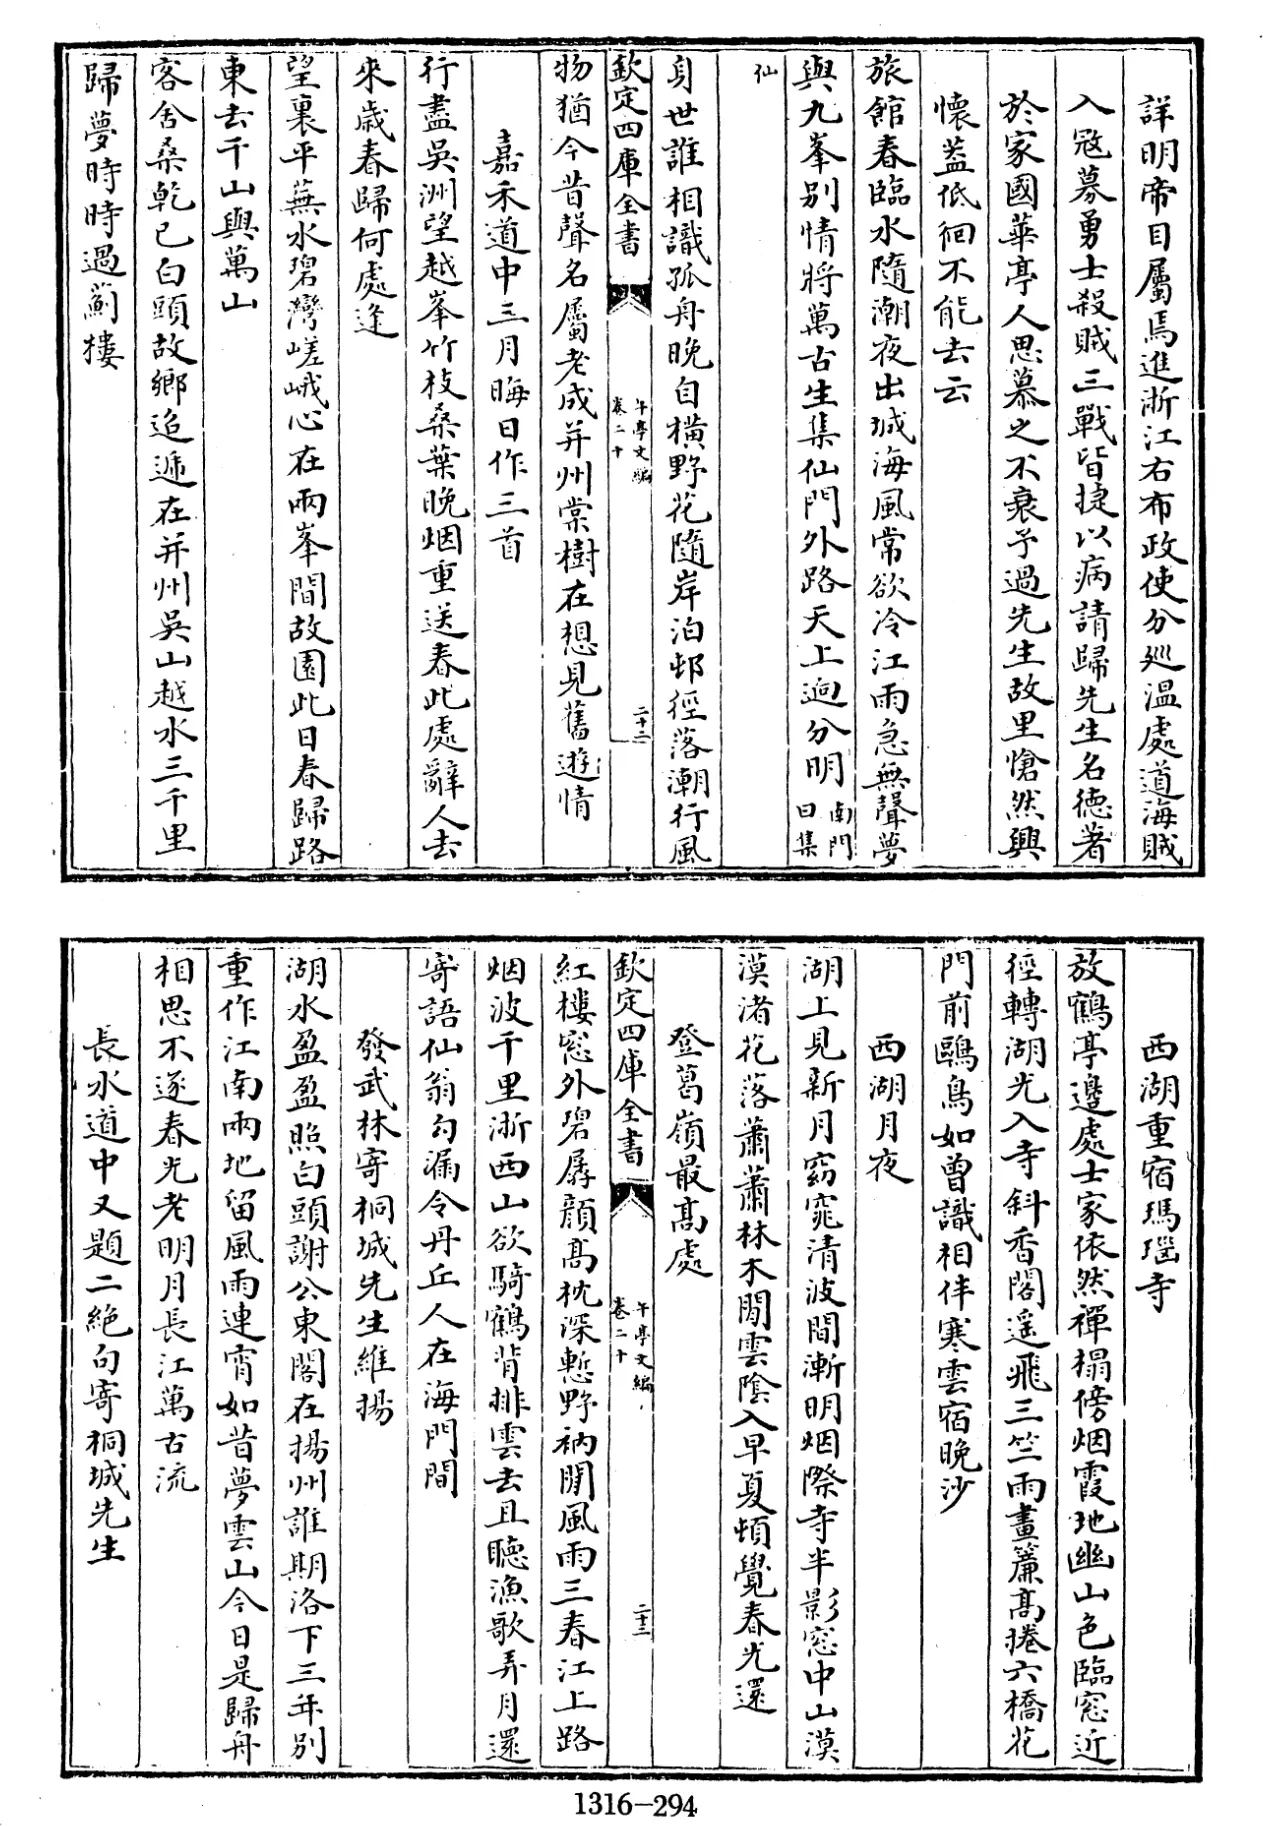 詳明帝目屬焉進浙江右布政使分巡温處道海賊
入寇募勇士殺賊三戰皆捷以病請歸先生名德著
於家國華亭人思慕之不衰予過先生故里愴然興
懷蓋低徊不能去云
旅館春臨水隨潮夜出城海風常欲冷江雨急無聲夢
與九峯别情將萬古生集仙門外路天上逈分明南門曰集
仙
身世誰相識孤舟晚自横野花隨岸泊邨徑落潮行風
欽定四庫全書
午亭文編
卷二十
二十二
物猶今昔聲名屬老成并州棠樹在想見舊遊情
嘉禾道中三月晦日作三首
行盡吳洲望越峯竹枝桑葉晚烟重送春此處辭人去
來歳春歸何處逢
望裏平蕪水碧灣嵯峨心在兩峯間故園此日春歸路
東去千山與萬山
客舎桑乾已白頭故鄉迢遞在并州吳山越水三千里
歸夢時時過薊樓
西湖重宿瑪瑙寺
放鶴亭邊處士家依然禪榻傍烟霞地幽山色臨窓近
徑轉湖光入寺斜香閣遥飛三竺雨畫簾髙捲六橋花
門前鷗鳥如曾識相伴寒雲宿晚沙
西湖月夜
湖上見新月窈窕清波間漸明烟際寺半影窓中山漠
漠渚花落蕭蕭林木閒雲陰入早夏頓覺春光還
登葛嶺最髙處
欽定四庫全書
午亭文編
卷二十
二十三
紅樓窓外碧孱顔髙枕深慙野衲閒風雨三春江上路
烟波千里浙西山欲騎鶴背排雲去且聽漁歌弄月還
寄語仙翁勾漏令丹丘人在海門間
發武林寄桐城先生維揚
湖水盈盈照白頭謝公東閣在揚州誰期洛下三年别
重作江南兩地留風雨連宵如昔夢雲山今日是歸舟
相思不逐春光老明月長江萬古流
長水道中又題二絶句寄桐城先生
1316-294